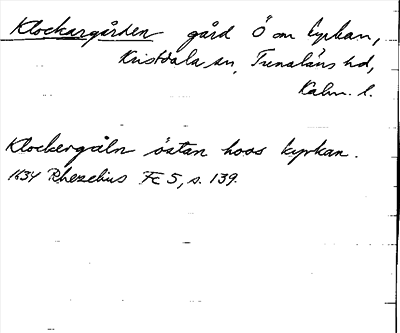 Klockargården gård Ö om kyrkan,
Kristdala sn, Tunaläns hd,
Kalm. l.
Klockergåln östan hoos kyrkan.
1634 Rhezelius Fc 5, s. 139.